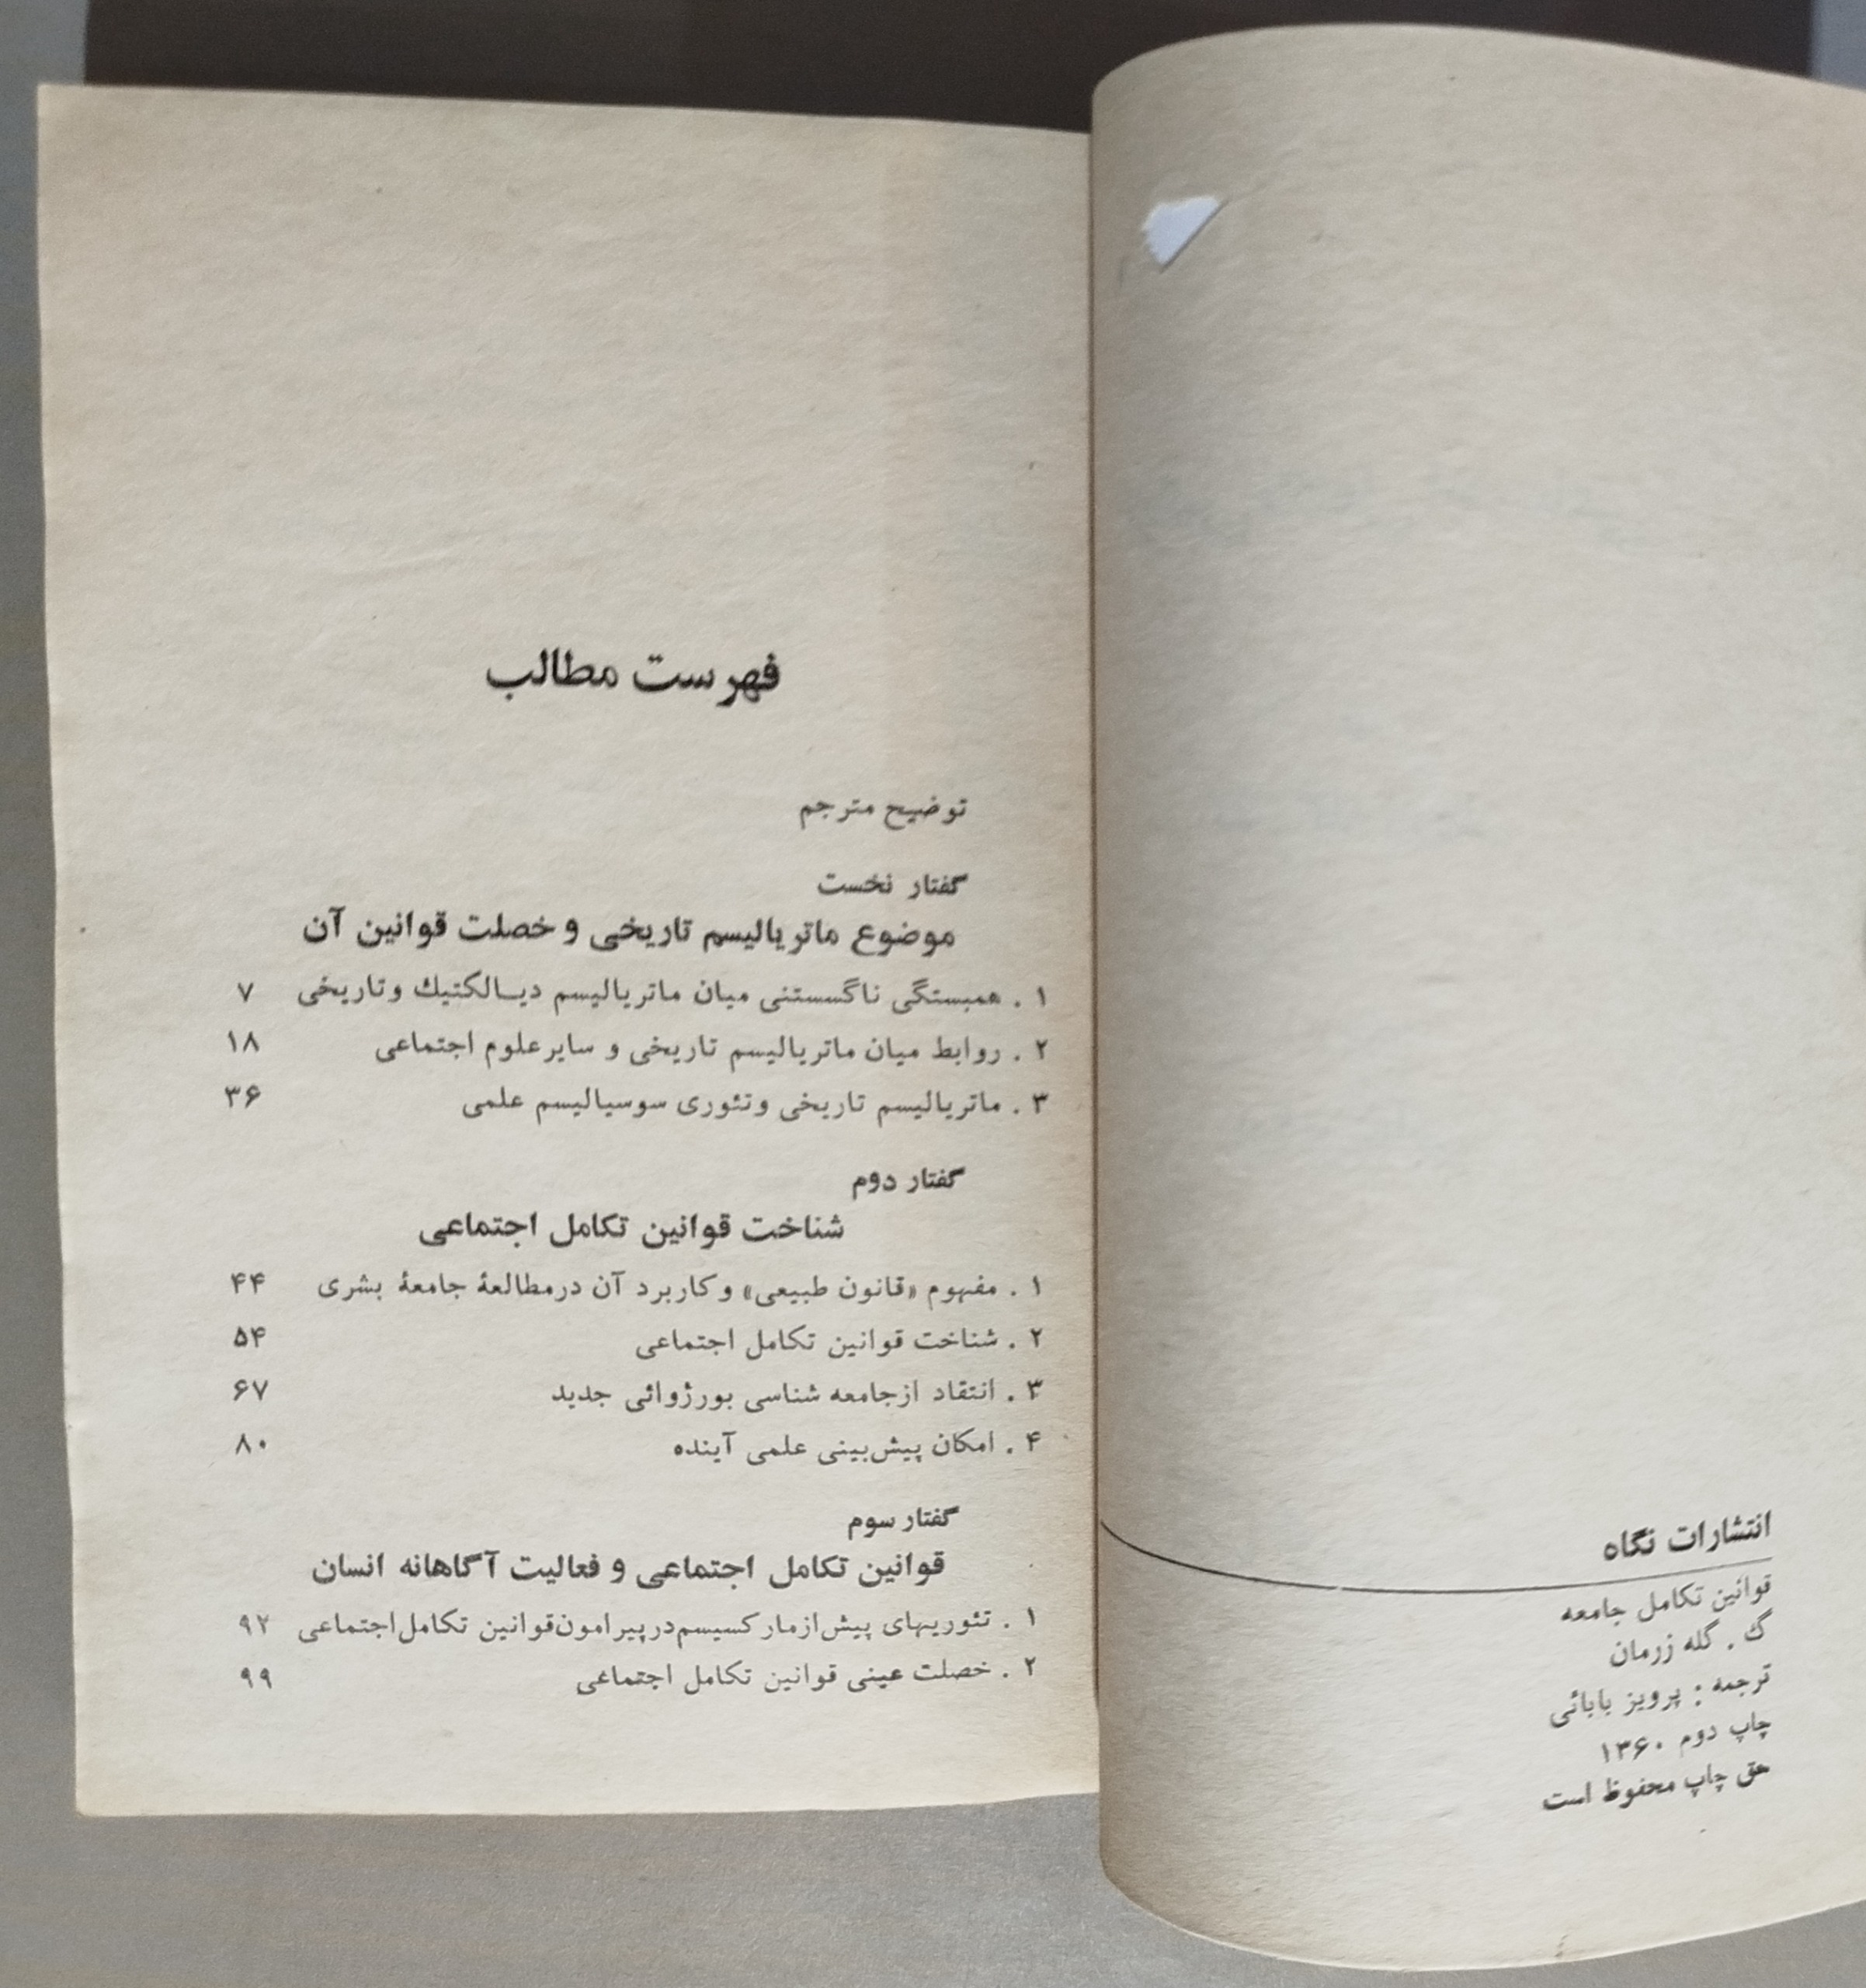 انتشارات نگاه
قوانین تکامل جامعه
گ . گله زرمان
ترجمه : پرویز بابائی
چاپ دوم ۱۳۶۰
حق چاپ محفوظ است
فهرست مطالب
توضیح مترجم
گفتار نخست
موضوع ماتریالیسم تاریخی و خصلت قوانین آن
۱ . همبستگی ناگسستنی میان ماتریالیسم دیـالکتیك وتاریخی ۷
۲ . روابط میان ماتریالیسم تاریخی و سایرعلوم اجتماعی ۱۸
۳ . ماتریالیسم تاریخی وتئوری سوسیالیسم علمی ۳۶
گفتار دوم
شناخت قوانین تکامل اجتماعی
۱ . مفهوم «قانون طبیعی» وکاربرد آن درمطالعۀ جامعۀ بشری ۴۴
۲ . شناخت قوانین تکامل اجتماعی ۵۴
۳ . انتقاد ازجامعه شناسی بورژوائی جدید ۶۷
۴ . امکان پیش‌بینی علمی آینده ۸۰
گفتار سوم
قوانین تکامل اجتماعی و فعالیت آگاهانه انسان
۱ . تئوریهای پیش‌ازمارکسیسم‌درپیرامون‌قوانین تکامل‌اجتماعی ۹۲
۲ . خصلت عینی قوانین تکامل اجتماعی ۹۹